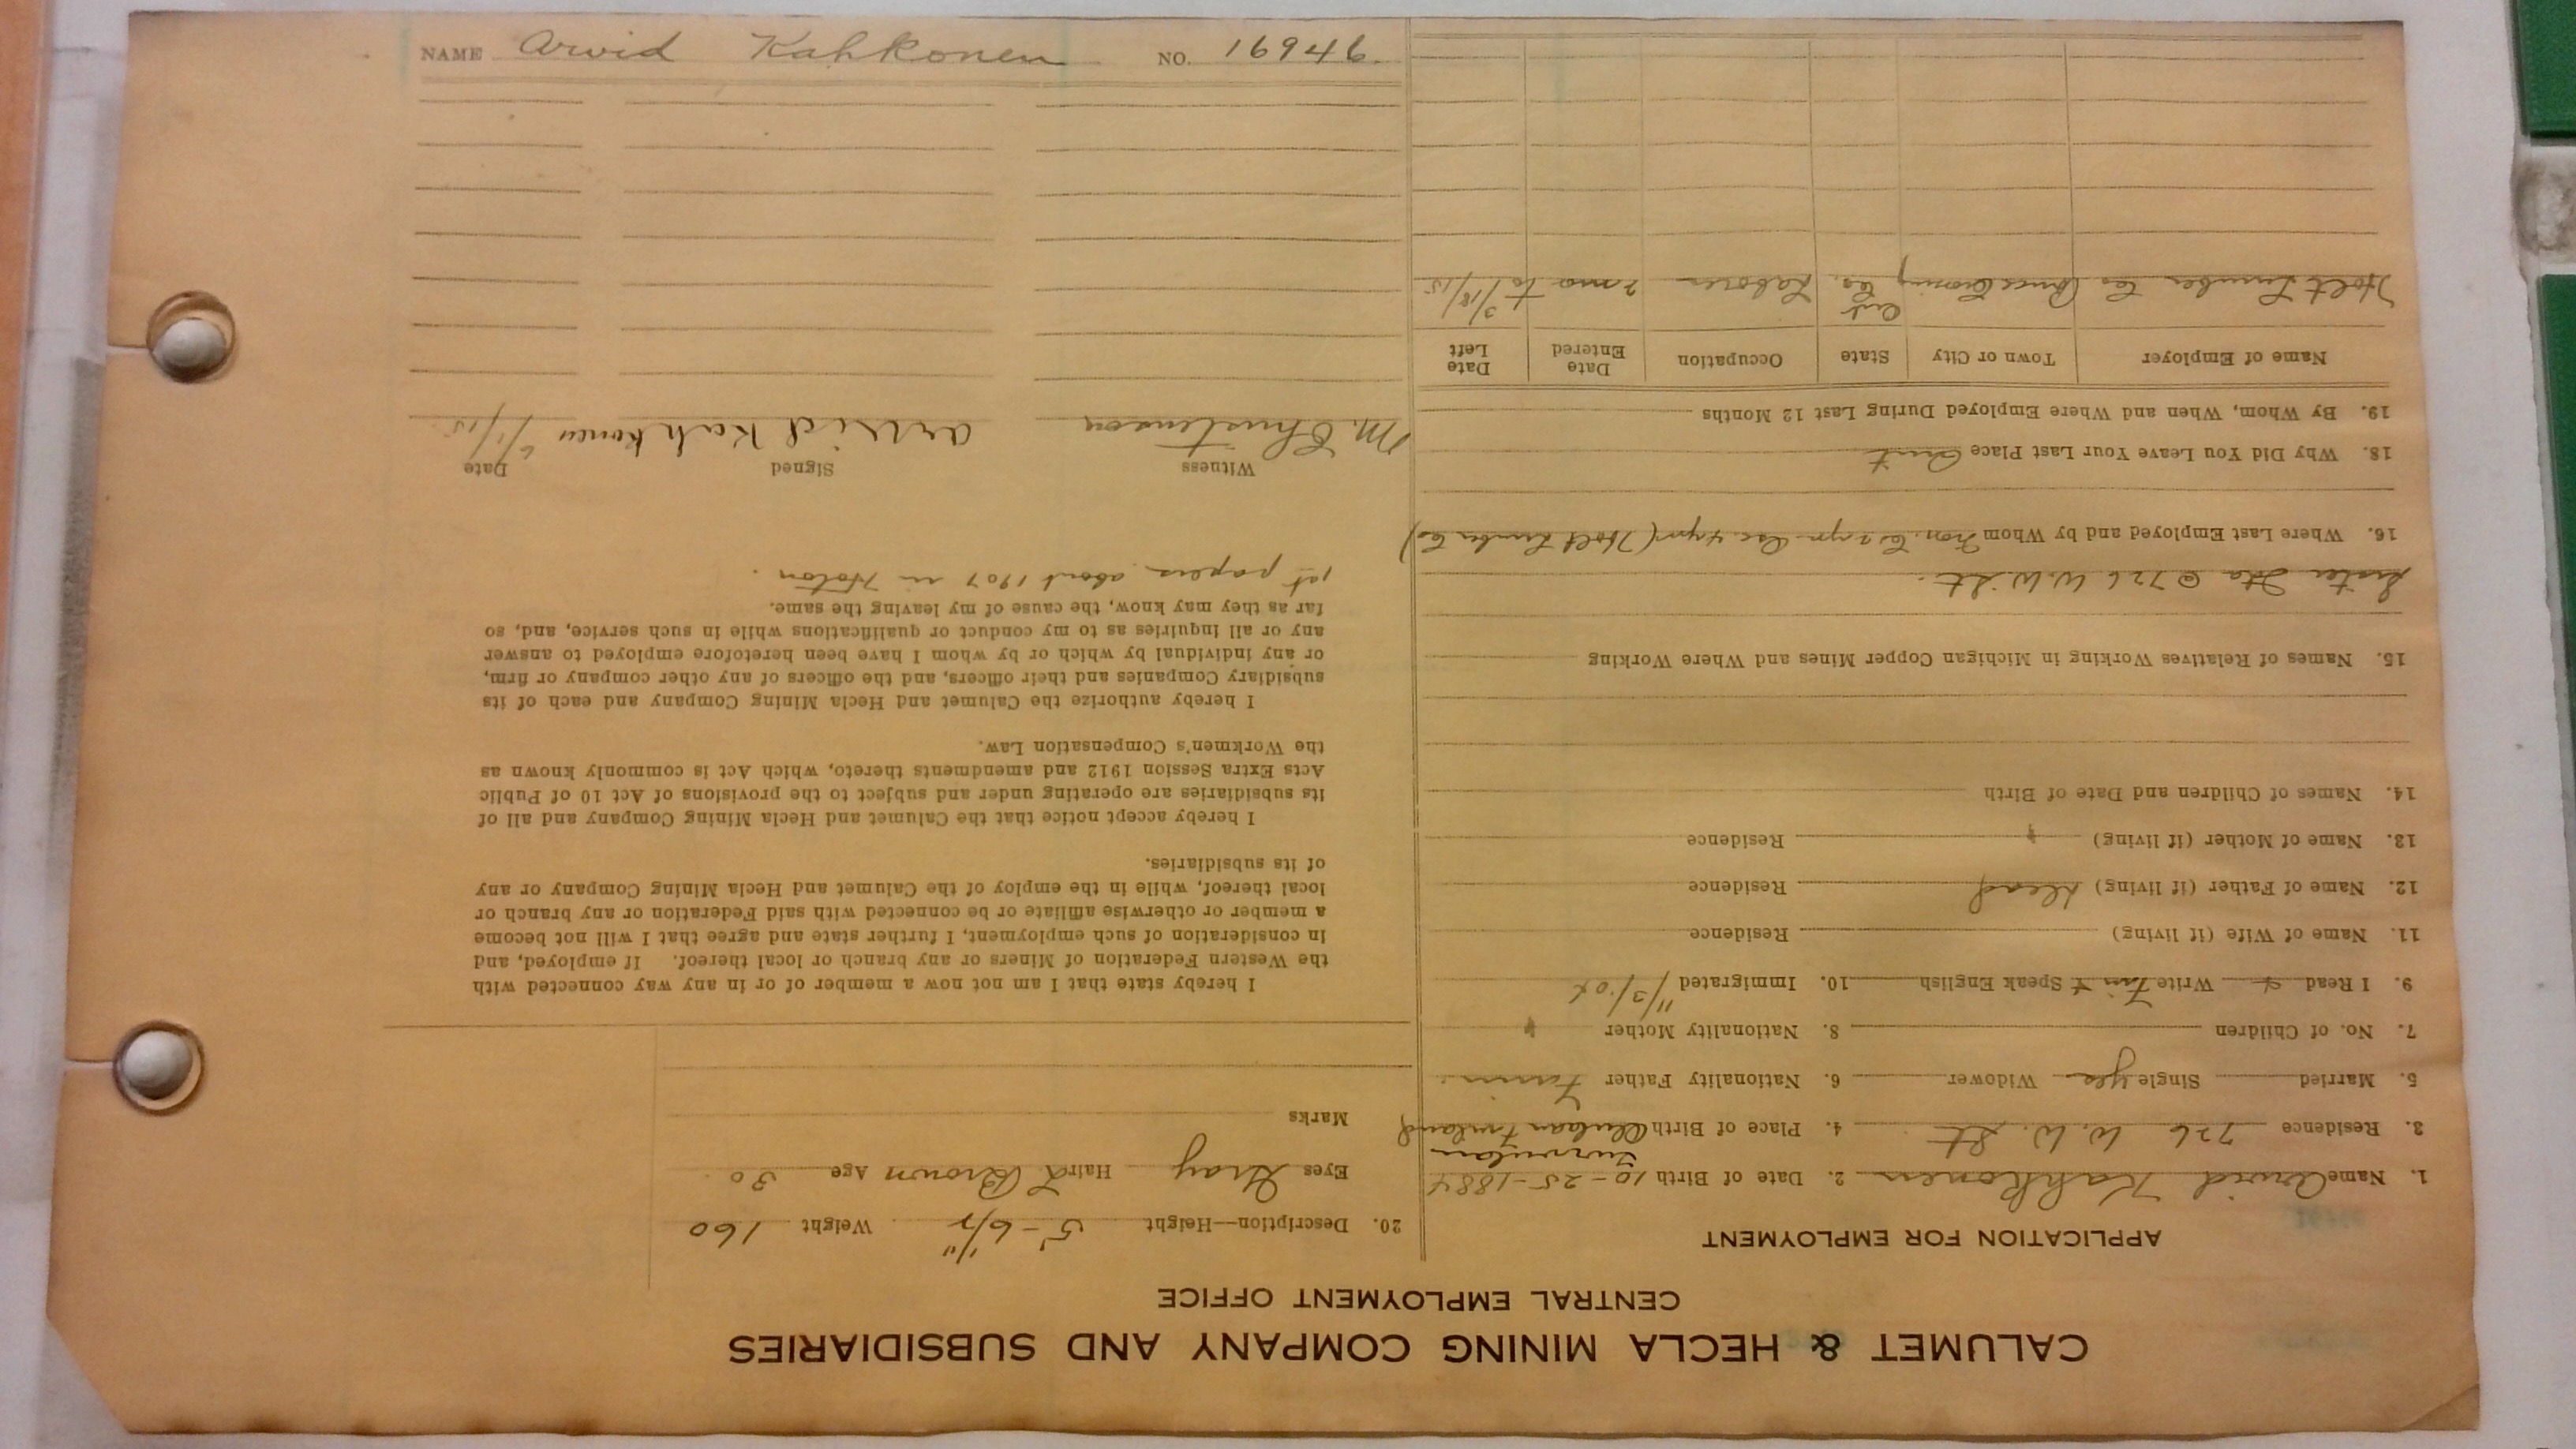 NAME Arvid Kahkonen NO. 16946.
CALUMET & HECLA MINING COMPANY AND SUBSIDIARIES
CENTRAL EMPLOYMENT OFFICE
APPLICATION FOR EMPLOYMENT
1. Name Arvid Kahkonen 2. Date of Birth 10-25-1884
3. Residence 726 W. W. St 4. Place of Birth Finland
5. Married Single yes Widower 6. Nationality Father Finn
7. No. of Children 8. Nationality Mother "
9. I Read Write Finn Speak English 10. Immigrated
11. Name of Wife (if living) Residence
12. Name of Father (if living) dead Residence
13. Name of Mother (if living) " Residence
14. Names of Children and Date of Birth
15. Names of Relatives Working in Michigan Copper Mines and Where Working
Sister @ 726 W. W. St.
16. Where Last Employed and by Whom (Holt Lumber Co)
18. Why Did You Leave Your Last Place Quit
19. By Whom, When and Where Employed During Last 12 Months
Name of Employer Town or City State Occupation Date Entered Date Left
Holt Lumber Co Laborer 2 mo to 3/18/15
20. Description—Height 5'-6½" Weight 160
Eyes Gray Hair L Brown Age 30
Marks
I hereby state that I am not now a member of or in any way connected with
the Western Federation of Miners or any branch or local thereof. If employed, and
in consideration of such employment, I further state and agree that I will not become
a member or otherwise affiliate or be connected with said Federation or any branch or
local thereof, while in the employ of the Calumet and Hecla Mining Company or any
of its subsidiaries.
I hereby accept notice that the Calumet and Hecla Mining Company and all of
its subsidiaries are operating under and subject to the provisions of Act 10 of Public
Acts Extra Session 1912 and amendments thereto, which Act is commonly known as
the Workmen's Compensation Law.
I hereby authorize the Calumet and Hecla Mining Company and each of its
subsidiary Companies and their officers, and the officers of any other company or firm,
or any individual by which or by whom I have been heretofore employed to answer
any or all inquiries as to my conduct or qualifications while in such service, and, so
far as they may know, the cause of my leaving the same.
1st papers about 1907 in Hoton.
Witness Signed Date
M. Christenson Arvid Kahkonen 6/1/15